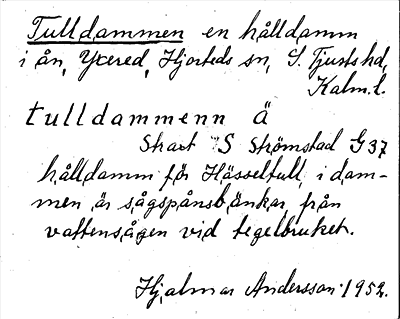 Tulldammen en hålldamm
i ån, Yxered, Hjorteds sn, S. Tjusts hd,
Kalm. l.
tulldammenn Ä
Strax S Strömstad G 37
hålldamm för Hässeltull, i dam-
men är sågspånsbänkar från
vattensågen vid tegelbruket.
Hjalmar Andersson 1952.